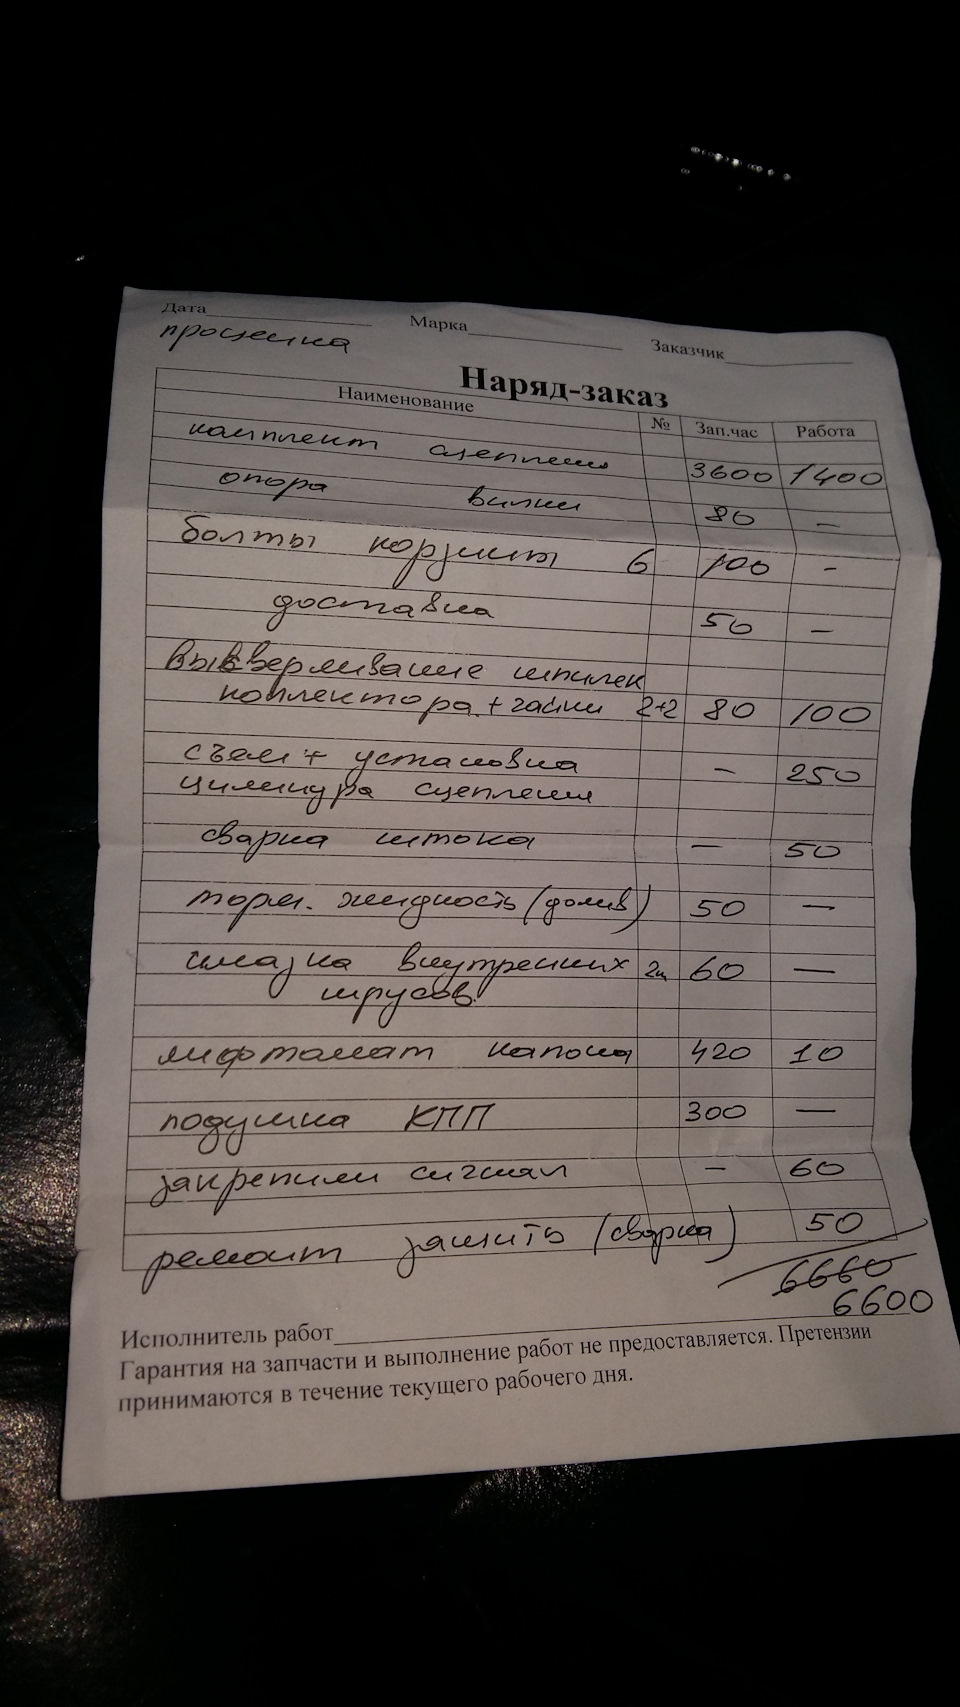 Дата Марка Заказчик
проценка
Наряд-заказ
Наименование № Зап.час Работа
комплект сцепления 3600 1400
опора вилки 80 –
болты корзины 6 100 -
доставка 50 –
высверливание шпилек
коллектора + гайки 2+2 80 100
съем + установка – 250
цилиндра сцепления
сварка штока – 50
торм. жидкость (долив) 50 –
смазка внутренних 2ш 60 –
шрусов
лифтомат капота 420 10
подушка КПП 300 –
закрепили сигнал – 60
ремонт защиты (сварка) 50
6660
6600
Исполнитель работ
Гарантия на запчасти и выполнение работ не предоставляется. Претензии
принимаются в течение текущего рабочего дня.